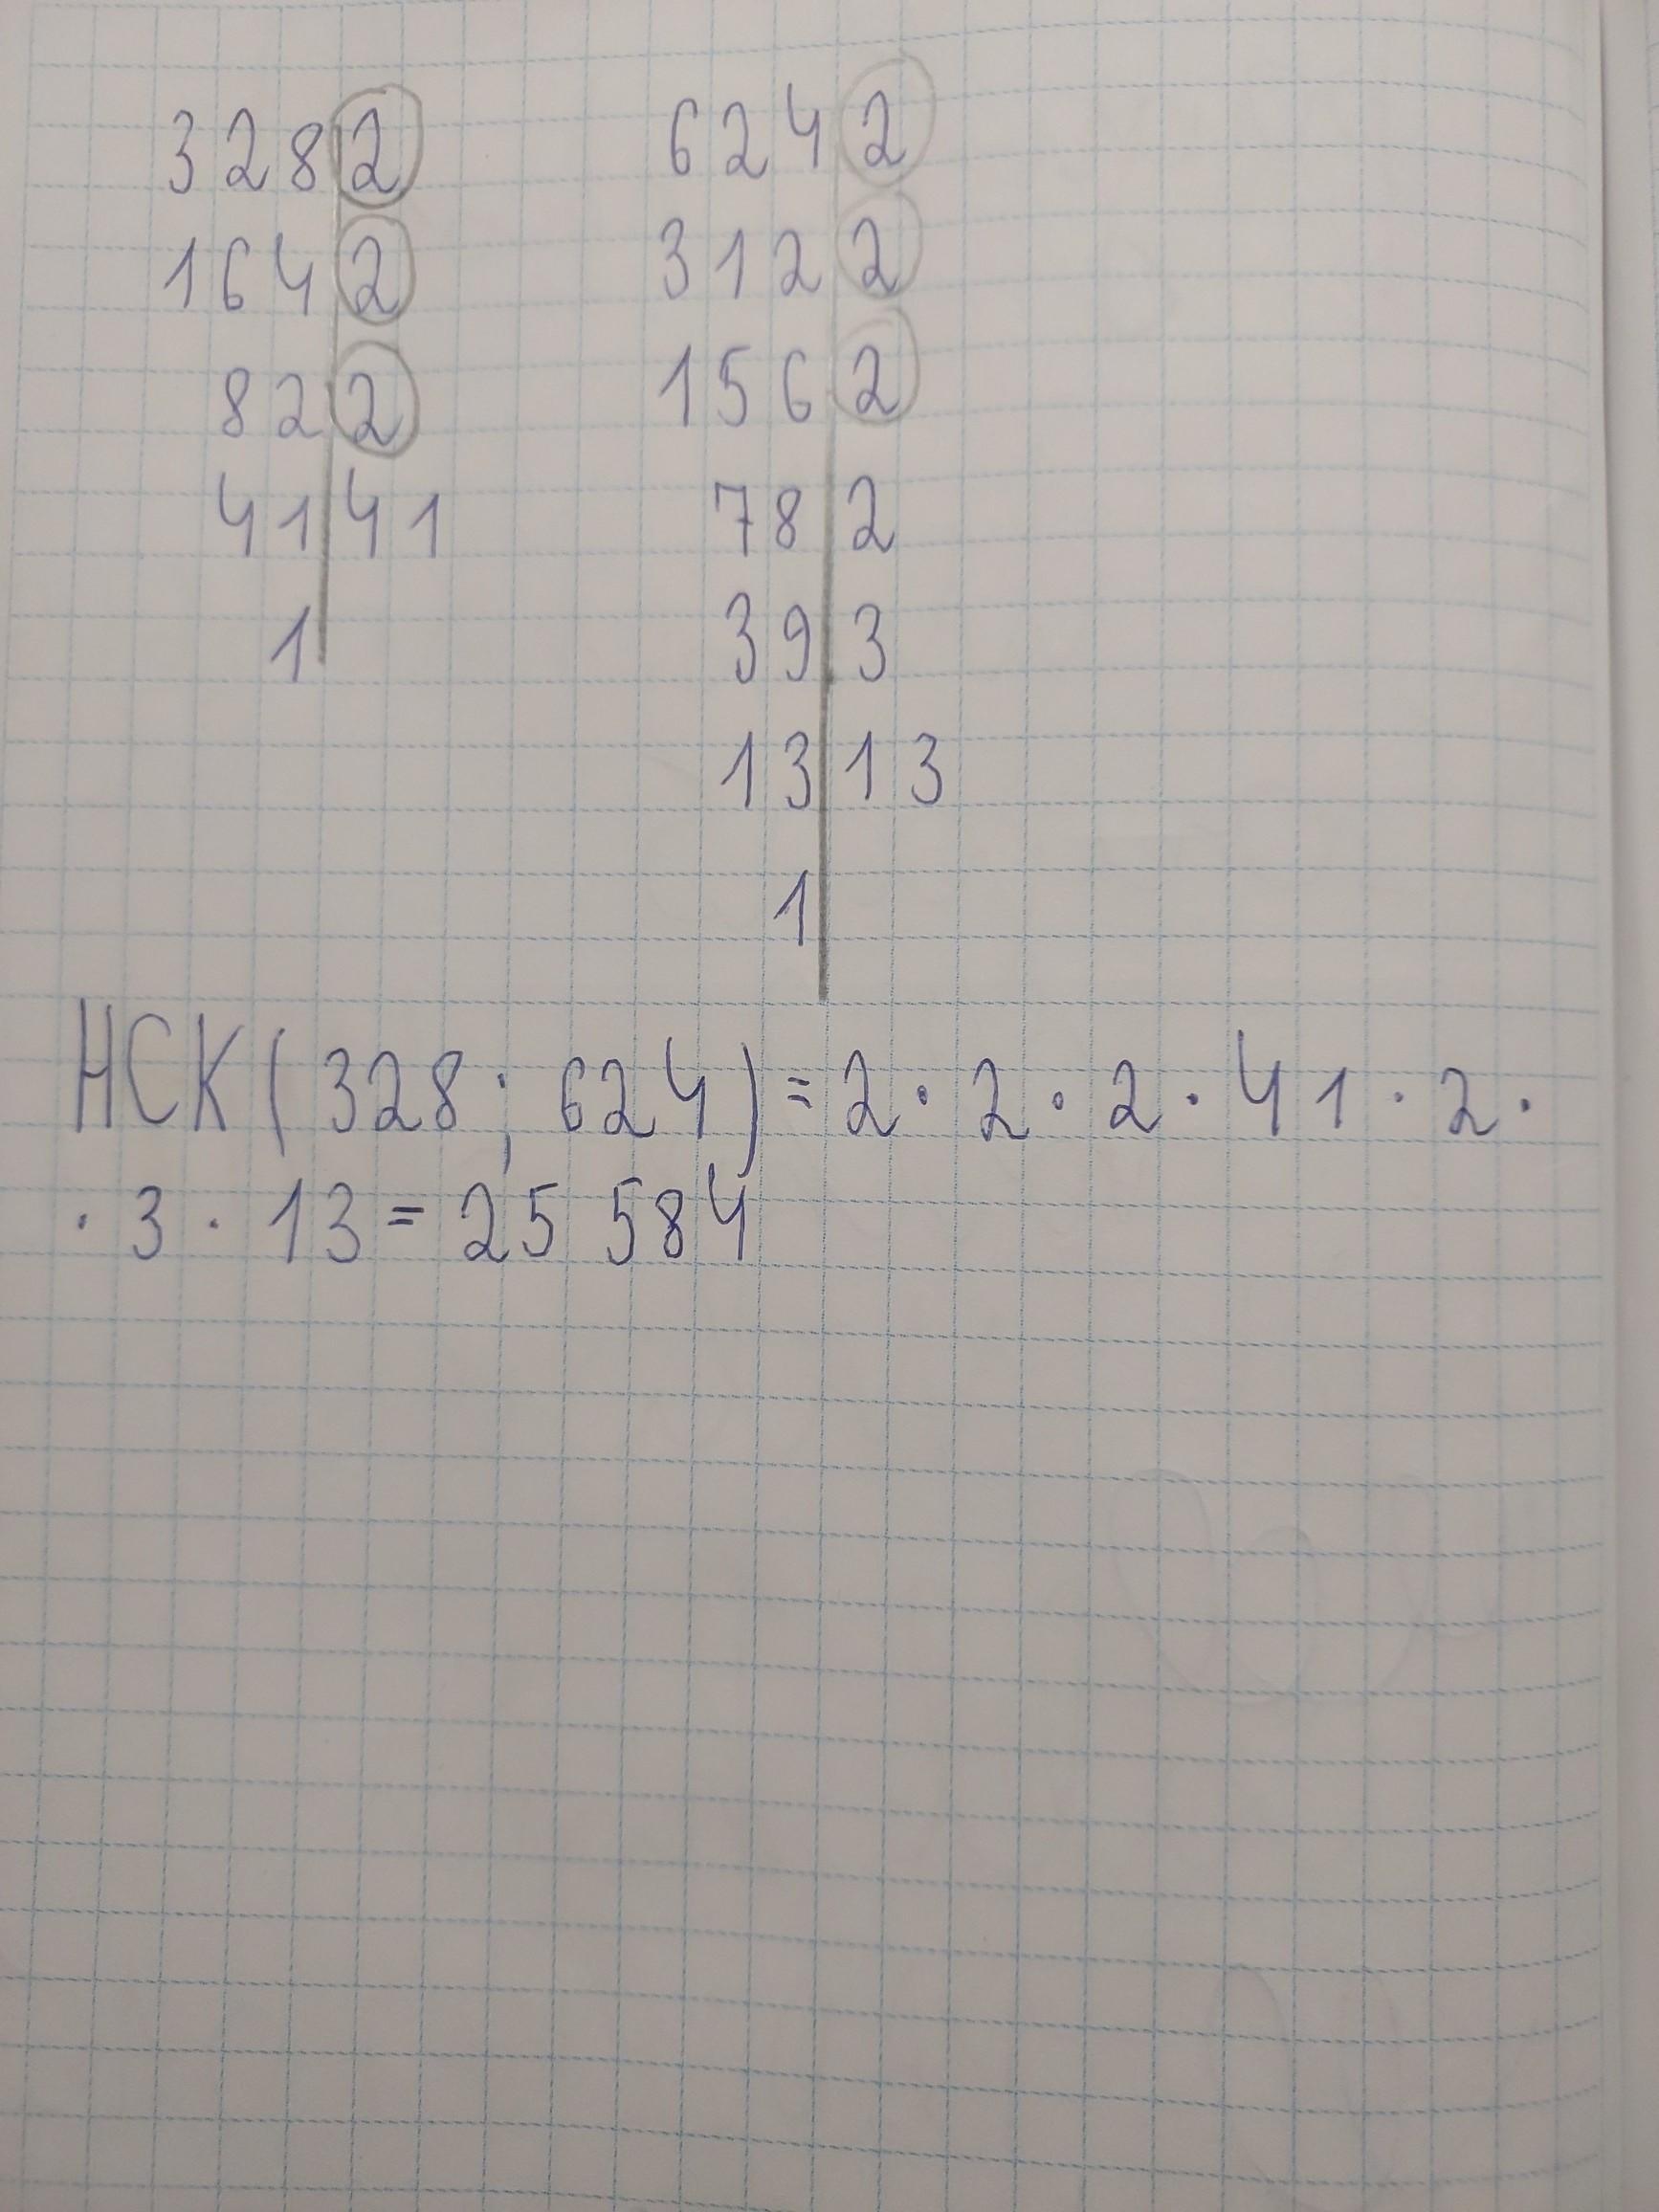 328 2
164 2
82 2
41 41
1
624 2
312 2
156 2
78 2
39 3
13 13
1
НСК(328; 624)=2·2·2·41·2·
·3·13=25 584